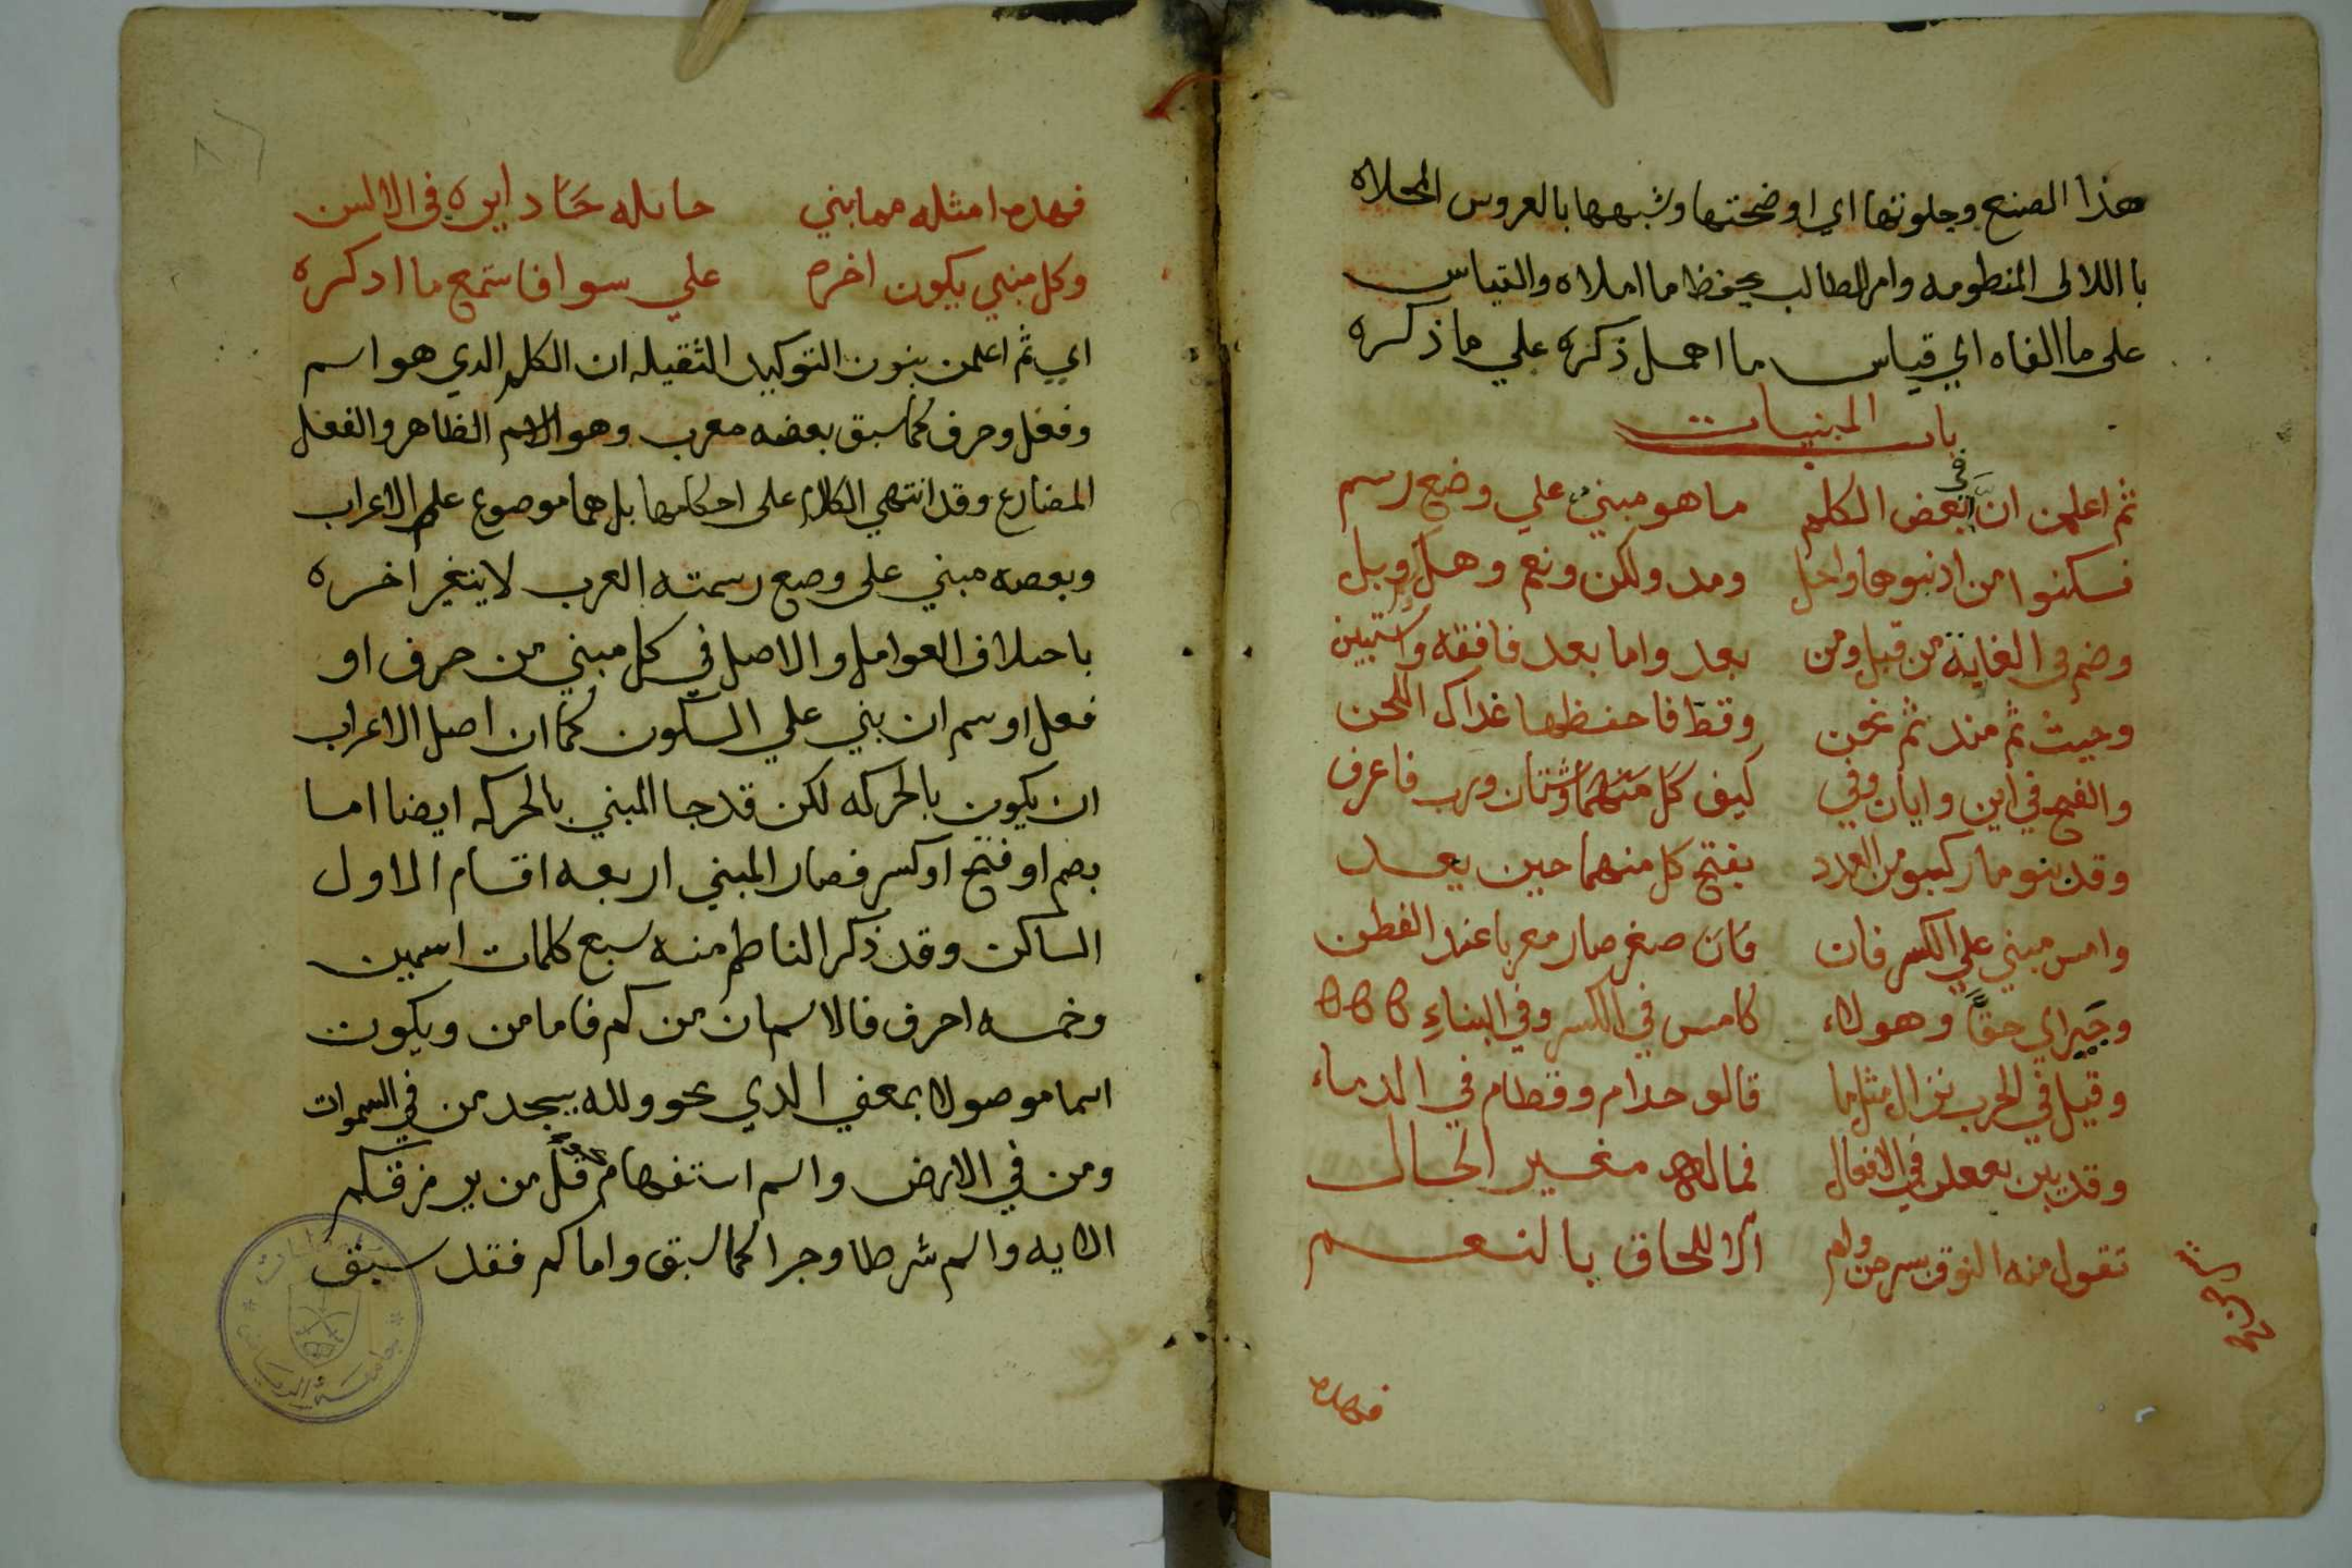 هذا الصنع وجلوتها اي اوضحتها وشبهها بالعروس المحلاه
با اللالى المنطومه وامر الطالب بحفظ ما املاه والقياس
على ما الفاه اي قياس ما اهمل ذكره علي ما ذكره
باب المبنيات
ثم اعلمن ان في بعض الكلم ما هو مبني علي وضع رسم
فسكنوا من اذ بنوها واجل ومد ولكن ونعم وهل وبل
وضم في الغاية من قبل ومن بعد واما بعد فافقه واستبين
وحيث ثم منذ ثم نحن وقط فاحفظها عداك اللحن
والفتح في اين وايان وفي كيف كل منهما وشتان ورب فاعرف
وقد بنو ما ركبو من العدد بفتح كل منهما حين يعد
وامس مبني علي الكسر فان فان صغر صار معربا عند الفطن
وجير اي حقا وهولاء كامس في الكسر وفي البناء
وقيل في الحرب نزال مثل ما قالو حدام وقطام في الدماء
وقد بني يفعلن في الافعال فما له مغير بحال
تقول منه النوق يسرحن ولم الا للحاق بالنعم
فهده
فهده امثله مما بني حايله دايره في الالسن
وكل مبني يكون اخره علي سوا فاستمع ما ادكره
اي ثم اعلمن بنون التوكيد الثقيله ان الكلم الدي هو اسم
وفعل وحرف كما سبق بعضه معرب وهو الاسم الظاهر والفعل
المضارع وقد انتهي الكلام على احكامها بل هما موضوع علم الاعراب
وبعضه مبني على وضع رسمته العرب لا يتغير اخره
باحتلاف العوامل والاصل في كل مبني من حرف او
فعل او سم ان بني علي السكون كما ان اصل الاعراب
ان يكون بالحركه لكن قد جا المبني بالحركه ايضا اما
بضم او فتح او كسر فصار المبني اربعه اقسام الاول
الساكن وقد ذكر الناطم منه سبع كلمات اسمين
وخمسه احرف فالاسمان من كم فاما من ويكون
اسما موصولا بمعني الدي نحو ولله يسجد من في السموات
ومن في الارض واسم استفهام نحو قل من يرزقكم
الايه واسم شرطا وجزا كما سبق واما كم فقد سبق